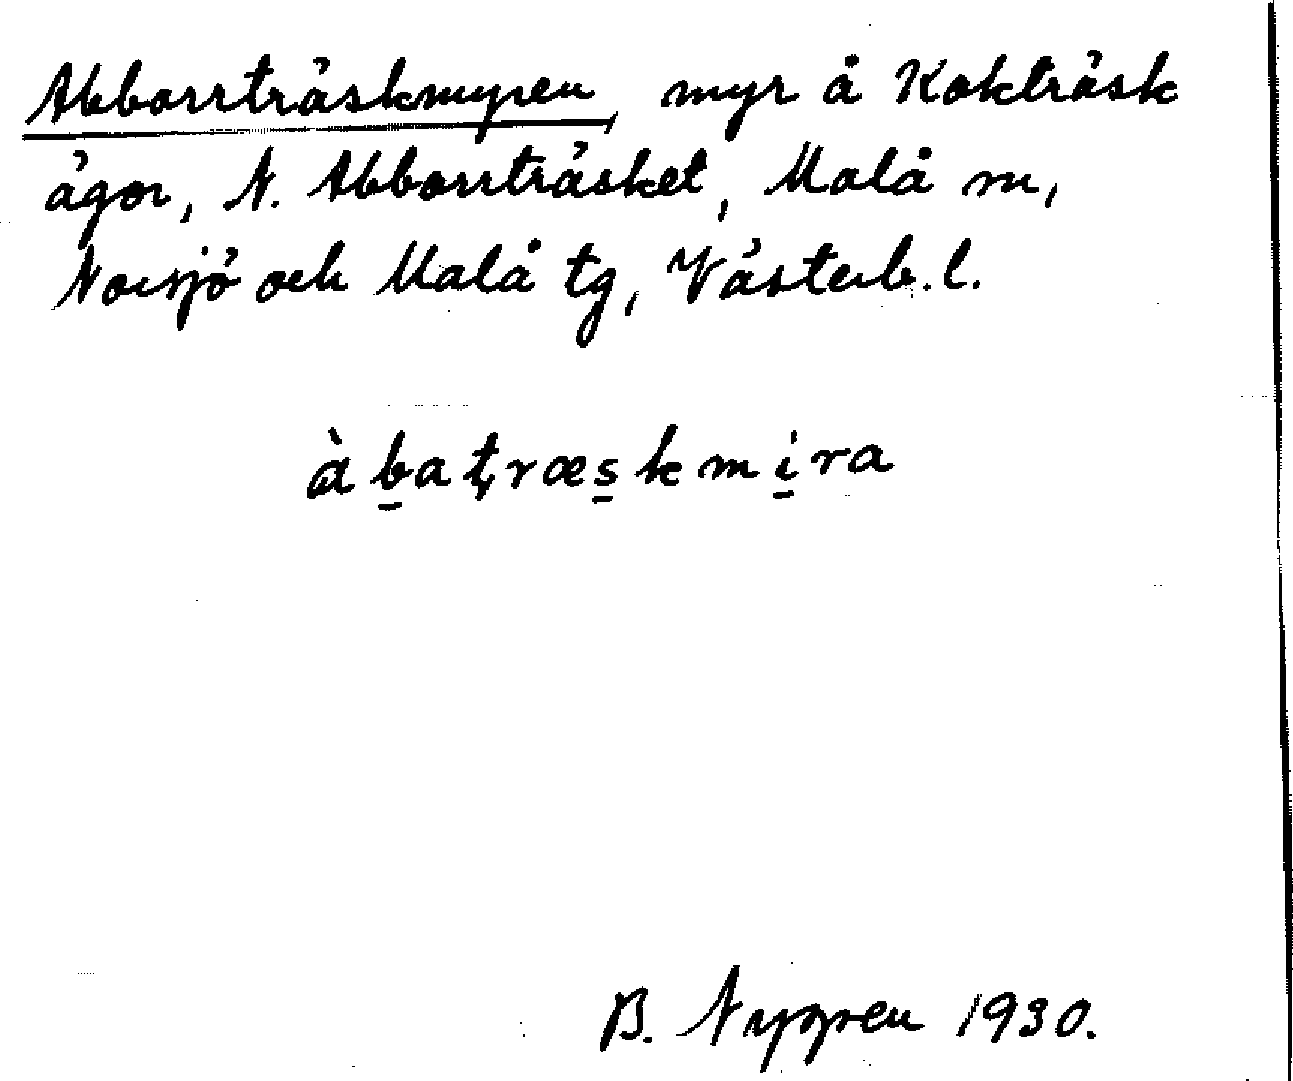 Abborrträskmyren, myr å Kokträsk
ägor, N. Abborrträsket, Malå sn,
Norsjö och Malå tg, Västerb. l.
àb̲aţræs̲kmi̲ra
B. Nygren 1930.